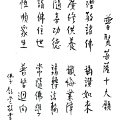 普賢菩薩十大願
禮敬諸佛 稱讚如來
廣修供養 懺悔業障
隨喜功德 請轉法輪
請佛住世 常隨佛學
恆順眾生 普皆迴向